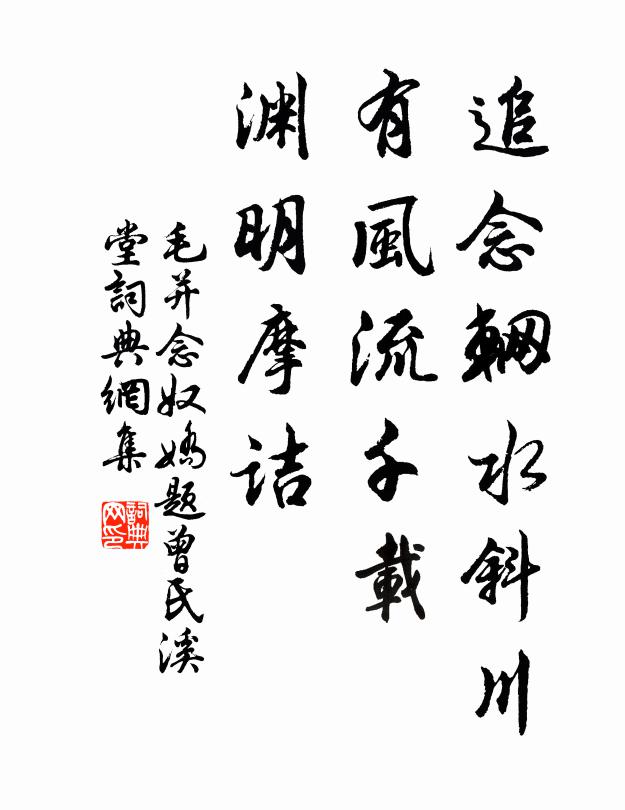 追念輞水斜川
有風流千載
淵明摩詰
毛并念奴嬌題曾氏溪
堂詞典網集
詞典网印